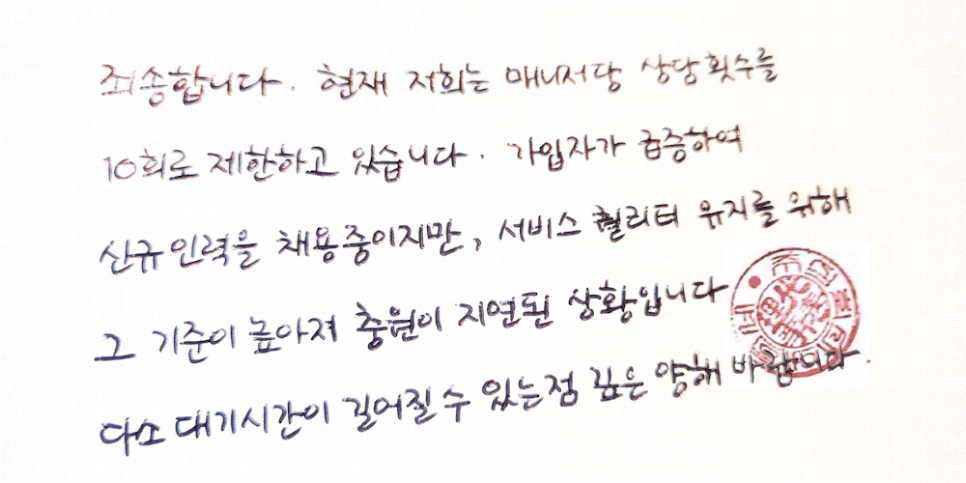 죄송합니다. 현재 저희는 매니저당 상담횟수를
10회로 제한하고 있습니다. 가입자가 급증하여
신규인력을 채용중이지만, 서비스 퀄리티 유지를 위해
그 기준이 높아져 충원이 지연된 상황입니다
다소 대기시간이 길어질 수 있는점 깊은 양해 바랍니다.